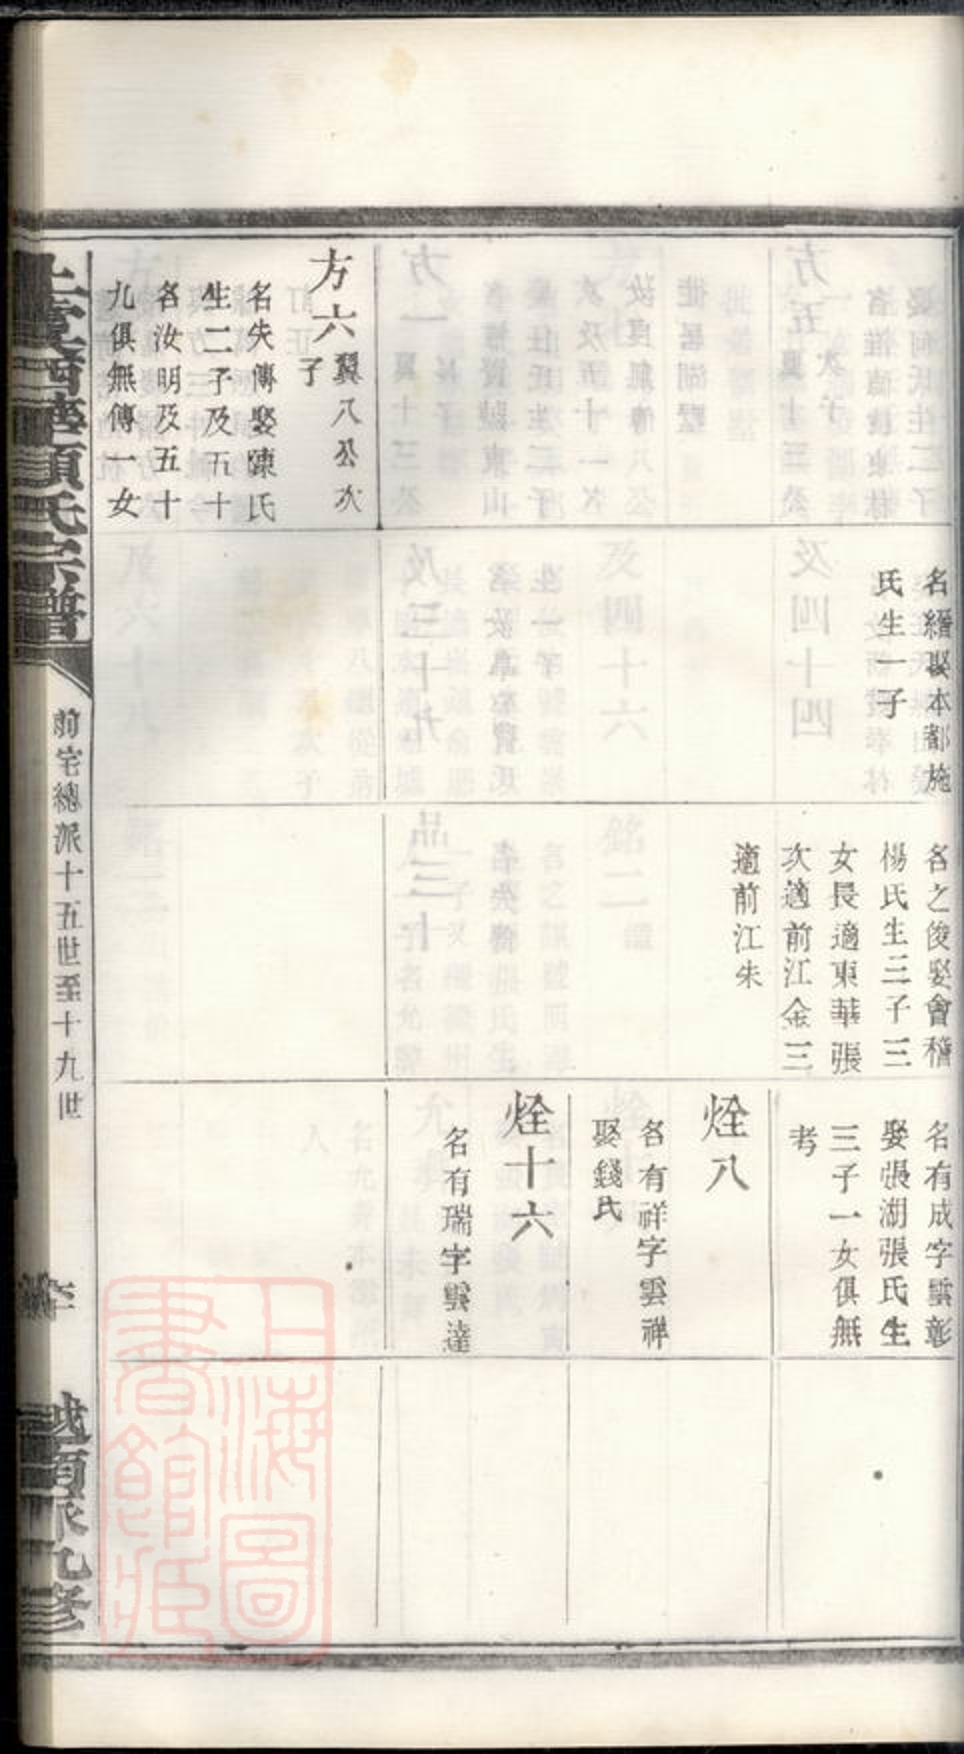 方六翼八公次
子
名失傳娶陳氏
生二子及五十
名汝明及五十
九俱無傳一女
名縉娶本都施
氏生一子
名之俊娶會稽
楊氏生三子三
女長適東華張
次適前江金三
適前江朱
名有成字雲彰
娶張湖張氏生
三子一女俱無
考
烇八
名有祥字雲祥
娶錢氏
烇十六
名有瑞字雲達
項氏宗譜
前宅總派十五世至十九世
上海圖
書館藏